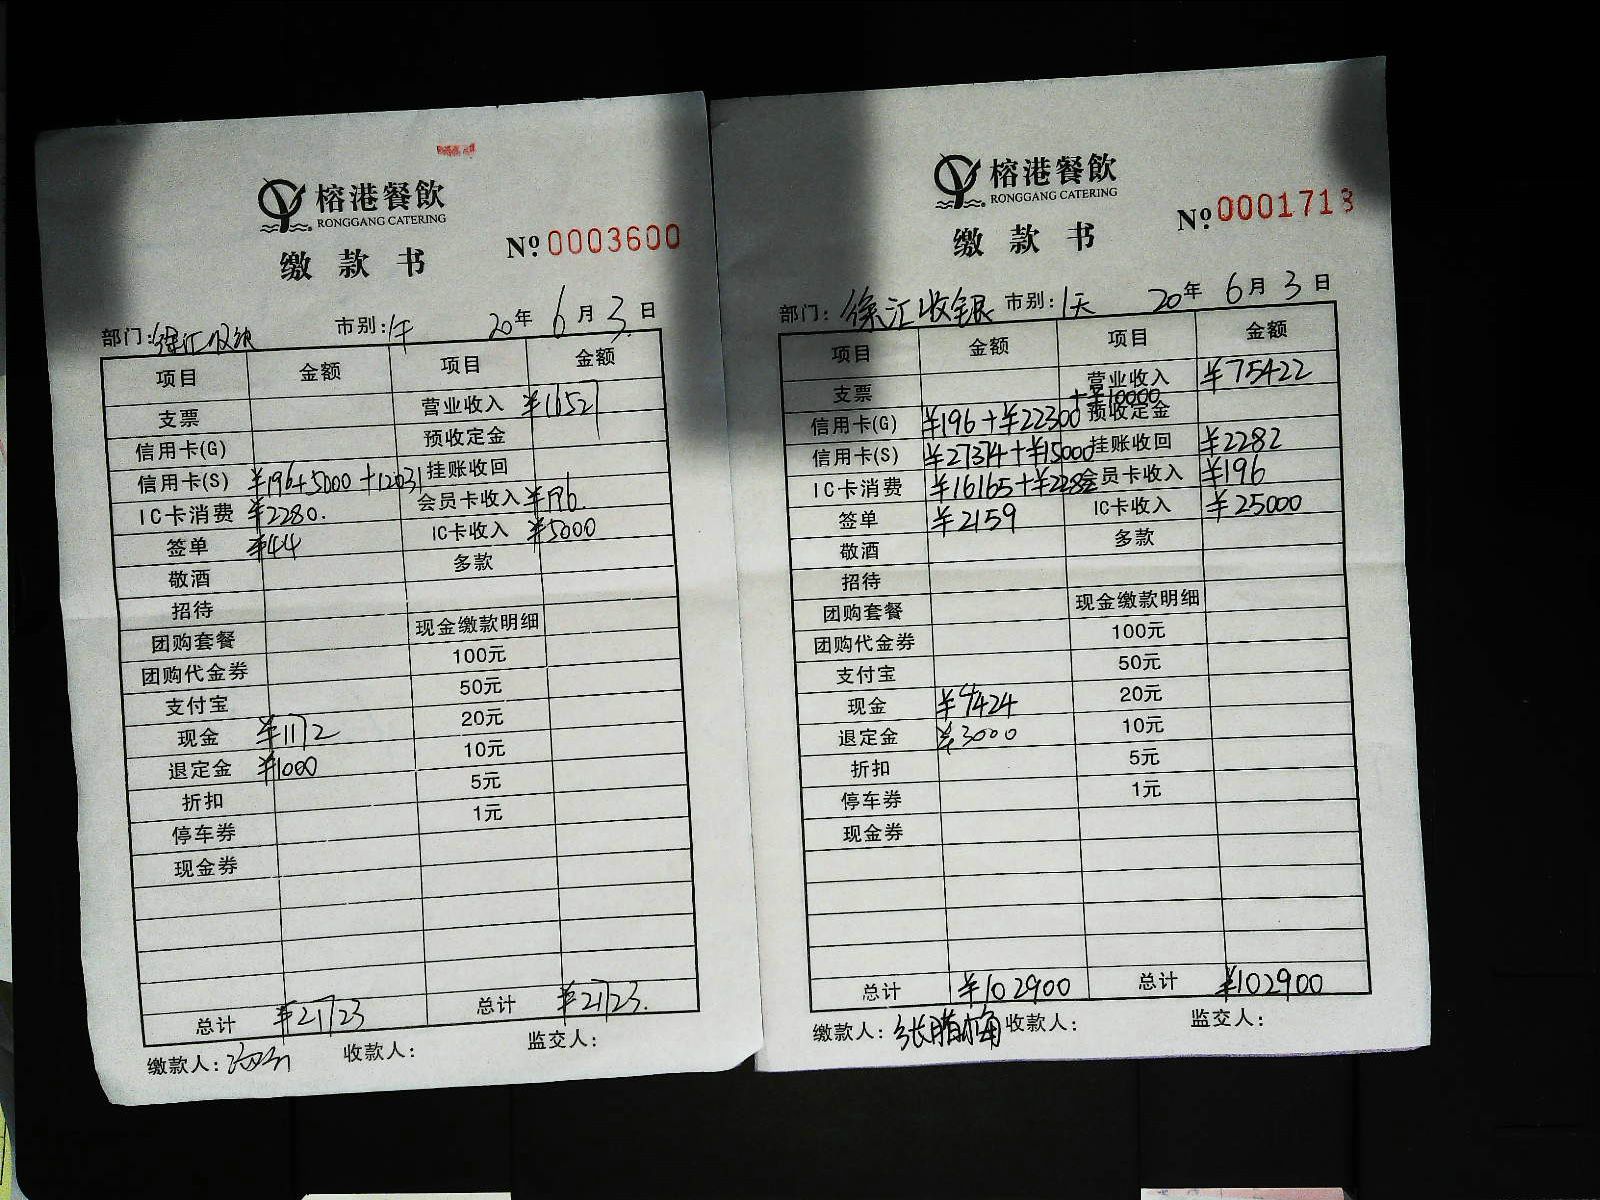 榕港餐飲
RONGGANG CATERING
缴款书
№:0003600
部门:徐汇收银 市别:午 20年6月3日
项目 金额 项目 金额
支票 营业收入 ¥16527
信用卡(G) 预收定金
信用卡(S) ¥196+5000+12031 挂账收回
IC卡消费 ¥2280. 会员卡收入 ¥196.
签单 ¥44 IC卡收入 ¥5000
敬酒 多款
招待
团购套餐 现金缴款明细
团购代金券 100元
支付宝 50元
现金 ¥1172 20元
退定金 ¥1000 10元
折扣 5元
停车券 1元
现金券
总计 ¥21723 总计 ¥21723.
缴款人: 收款人: 监交人:
榕港餐飲
RONGGANG CATERING
缴款书
№:0001718
部门:徐汇收银 市别:1天 20年6月3日
项目 金额 项目 金额
支票 营业收入 ¥75422
信用卡(G) ¥196+¥22300+¥10000 预收定金
信用卡(S) ¥27374+¥15000 挂账收回 ¥2282
IC卡消费 ¥16165+¥2282 会员卡收入 ¥196
签单 ¥2159 IC卡收入 ¥25000
敬酒 多款
招待
团购套餐 现金缴款明细
团购代金券 100元
支付宝 50元
现金 ¥4424 20元
退定金 ¥3000 10元
折扣 5元
停车券 1元
现金券
总计 ¥102900 总计 ¥102900
缴款人:张腊梅 收款人: 监交人: